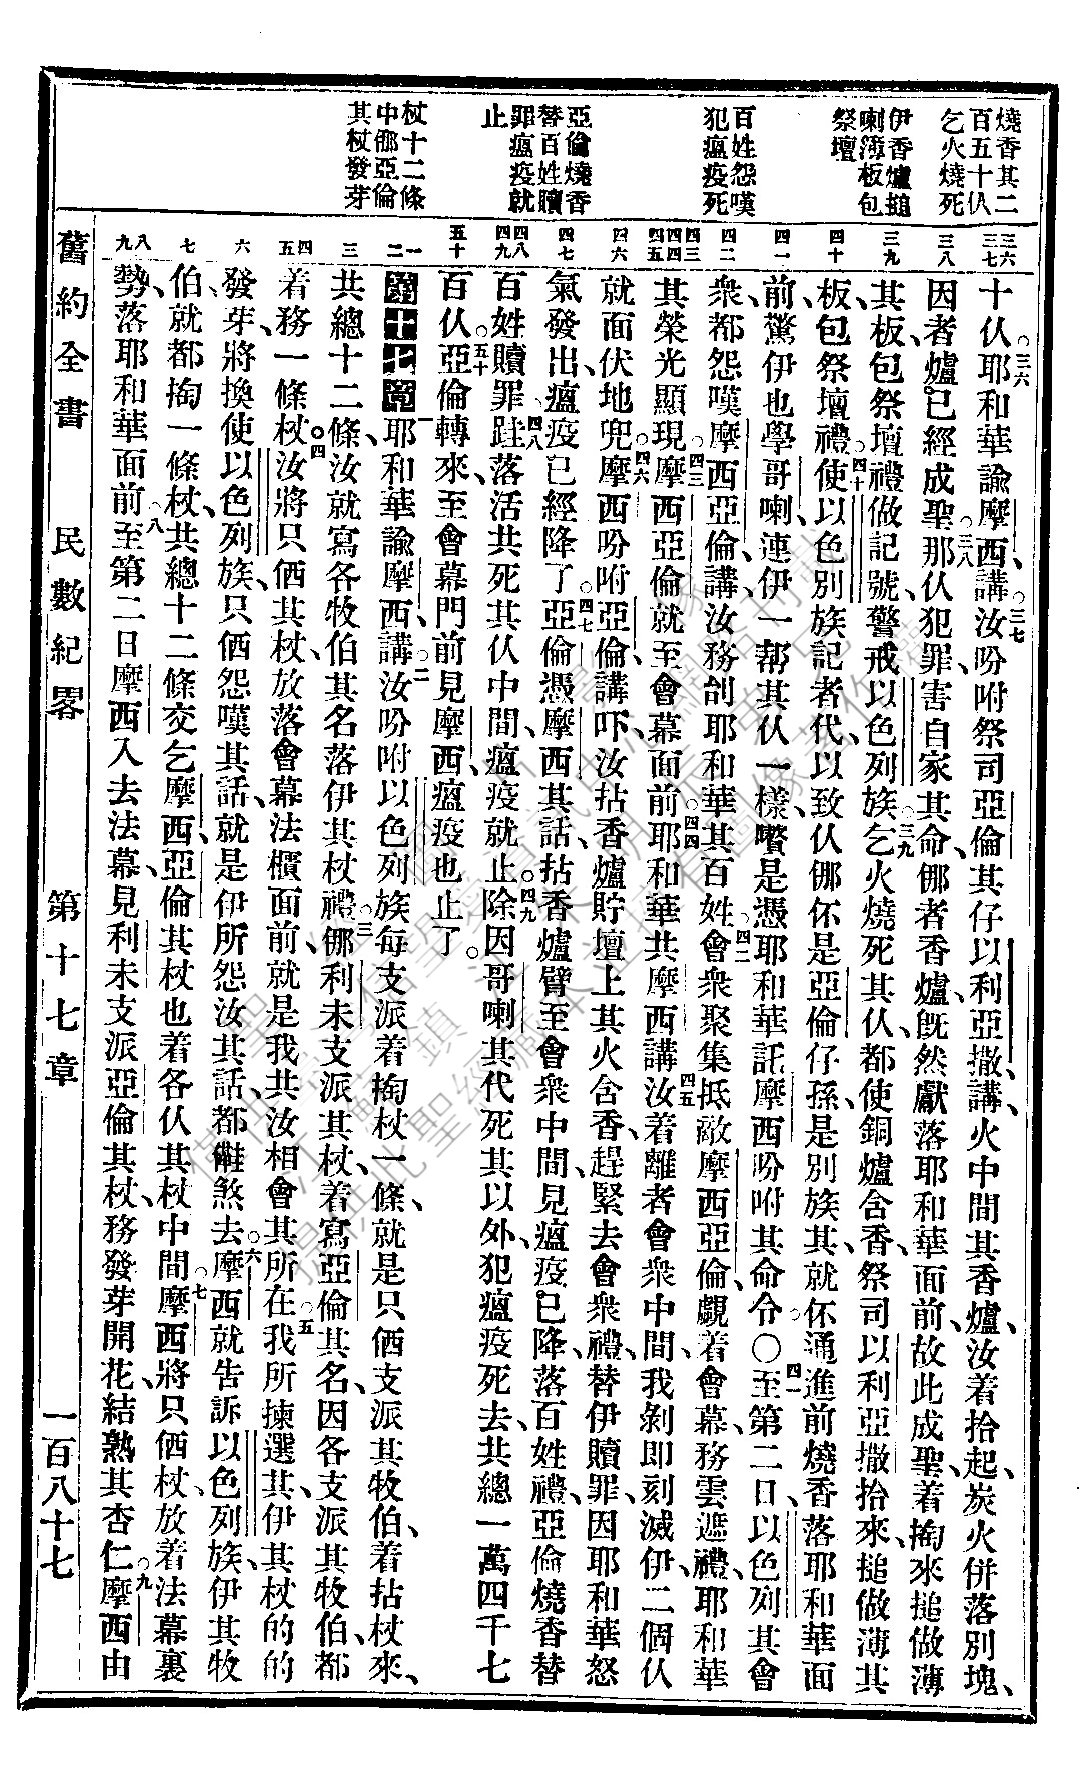 燒香其二
百五十伙
乞火燒死
伊香爐搥
喇薄板包
祭壇
百姓怨嘆
犯瘟疫死
亞倫燒香
替百姓贖
罪瘟疫就
止
杖十二條
中㑚亞倫
其杖發芽
十伙。三六耶和華諭摩西講、。三七汝吩咐祭司亞倫其仔以利亞撒講、火中間其香爐、汝着拾起、炭火併落別塊、
因者爐已經成聖。三八那伙犯罪、害自家其命、㑚者香爐、旣然獻落耶和華面前、故此成聖、着掏來搥做薄
其板、包祭壇禮、做記號、警戒以色列族。三九乞火燒死其伙、都使銅爐含香、祭司以利亞撒拾來、搥做薄其
板、包祭壇禮。四十使以色別族記者代、以致伙㑚伓是亞倫仔孫、是別族其、就伓通進前燒香、落耶和華面
前、驚伊也學哥喇、連伊一帮其伙一樣、嚽是憑耶和華託摩西吩咐其命令。〇四一至第二日、以色列其會
衆都怨嘆摩西亞倫講、汝務刣耶和華其百姓。四二會衆聚集抵敵摩西亞倫、覷着會幕、務雲遮禮、耶和華
其榮光顯現。四三摩西亞倫就至會幕面前。四四耶和華共摩西講、四五汝着離者會衆中間、我剝卽刻滅伊二個伙
就面伏地兜。四六摩西吩咐亞倫講、吓、汝拈香爐貯壇上其火含香、趕緊去會衆禮、替伊贖罪、因耶和華怒
氣發出、瘟疫已經降了。四七亞倫憑摩西其話、拈香爐臂至會衆中間、見瘟疫已降落百姓禮、亞倫燒香替
百姓贖罪、四八跬落活共死其伙中間、瘟疫就止。四九除因哥喇其代死其以外、犯瘟疫死去、共總一萬四千七
百伙。五十亞倫轉來至會幕門前見摩西、瘟疫也止了。
第十七章一耶和華諭摩西講、。二汝吩咐以色列族、每支派着掏杖一條、就是只価支派其牧伯、着拈杖來、
共總十二條、汝就寫各牧伯其名落伊其杖禮。三㑚利未支派其杖、着寫亞倫其名、因各支派其牧伯、都
着務一條杖。四汝將只価其杖放落會幕法櫃面前、就是我共汝相會其所在。五我所揀選其、伊其杖的的
發芽、將換使以色列族、只価怨嘆其話、就是伊所怨汝其話、都𣍐煞去。六摩西就告訴以色列族、伊其牧
伯就都掏一條杖、共總十二條、交乞摩西、亞倫其杖也着各伙其杖中間。七摩西將只価杖、放着法幕裏
勢、落耶和華面前。八至第二日、摩西入去法幕、見利未支派亞倫其杖、務發芽開花、結熟其杏仁。九摩西由
三六
三七
三八
三九
四十
四一
四二
四三
四四
四五
四六
四七
四八
四九
五十
一
二
三
四
五
六
七
八
九
舊約全書 民數紀畧 第十七章 一百八十七